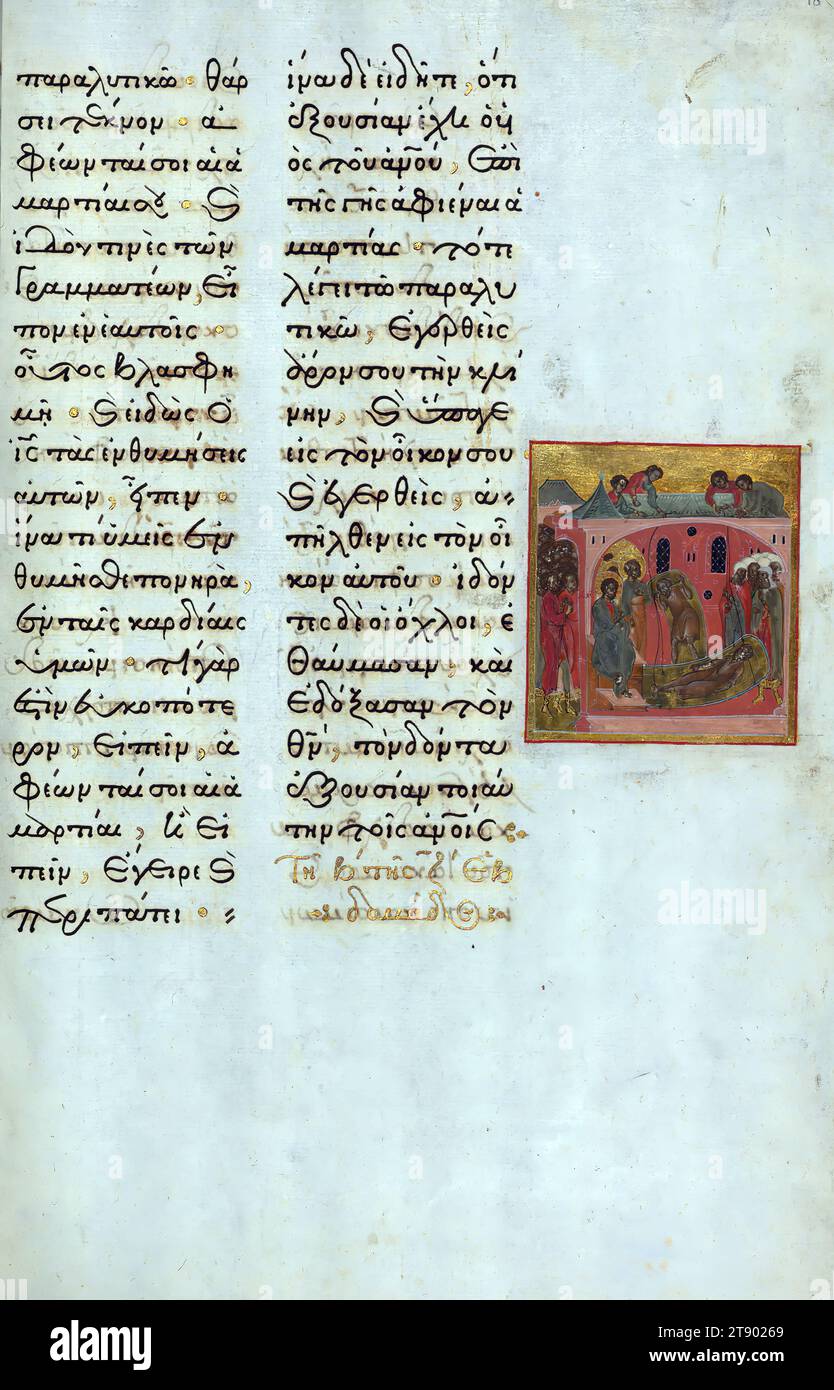 παραλυτικῶ · θάρ
σει τέκνον · ἀ
φέωνταί σοι αἱ ἁ
μαρτίαι σου · Ϗ
ἰδού τινὲς τῶν
Γραμματέων, Εἶ
πον ἐν ἑαυτοῖς ·
οὗτος βλασφη
μῆ · Ϗ εἰδὼς Ο
ἰς τὰς ἐνθυμήσεις
αὐτῶν, εἶπεν ·
ἵνα τί ὑμεῖς ἐν
θυμῆσθε πονηρὰ,
ἐν ταῖς καρδίαις
ὑμῶν · τί γάρ
ἐστὶν εὐκοπότε
ρον, Εἰπεῖν, ἀ
φέωνταί σοι αἱ ἁ
μαρτίαι, ἢ Εἰ
πεῖν, Ἔγειρε Ϗ
περιπάτει ·
ἵνα δὲ εἰδῆτε, ὅτι
ἐξουσίαν ἔχει ὁ υἱ
ὸς τοῦ ἀνου, Ἐπὶ
τῆς γῆς ἀφιέναι ἁ
μαρτίας · τότε
λέγει τῶ παραλυ
τικῶ, Ἐγερθεὶς
ἆρόν σου τὴν κλί
νην, Ϗ ὕπαγε
εἰς τὸν οἶκον σου
Ϗ ἐγερθεὶς, ἀ
πῆλθεν εἰς τὸν οἶ
κον αὐτοῦ · ἰδόν
τες δὲ οἱ ὄχλοι, ἐ
θαύμασαν, καὶ
Ἐδόξασαν τὸν
θν, τὸν δόντα
ἐξουσίαν τοιαύ
την τοῖς ἀνοις
Τῆ β τῆς ἑβ
δομάδος
alamy
alamy
Image ID: 2T90269
www.alamy.com